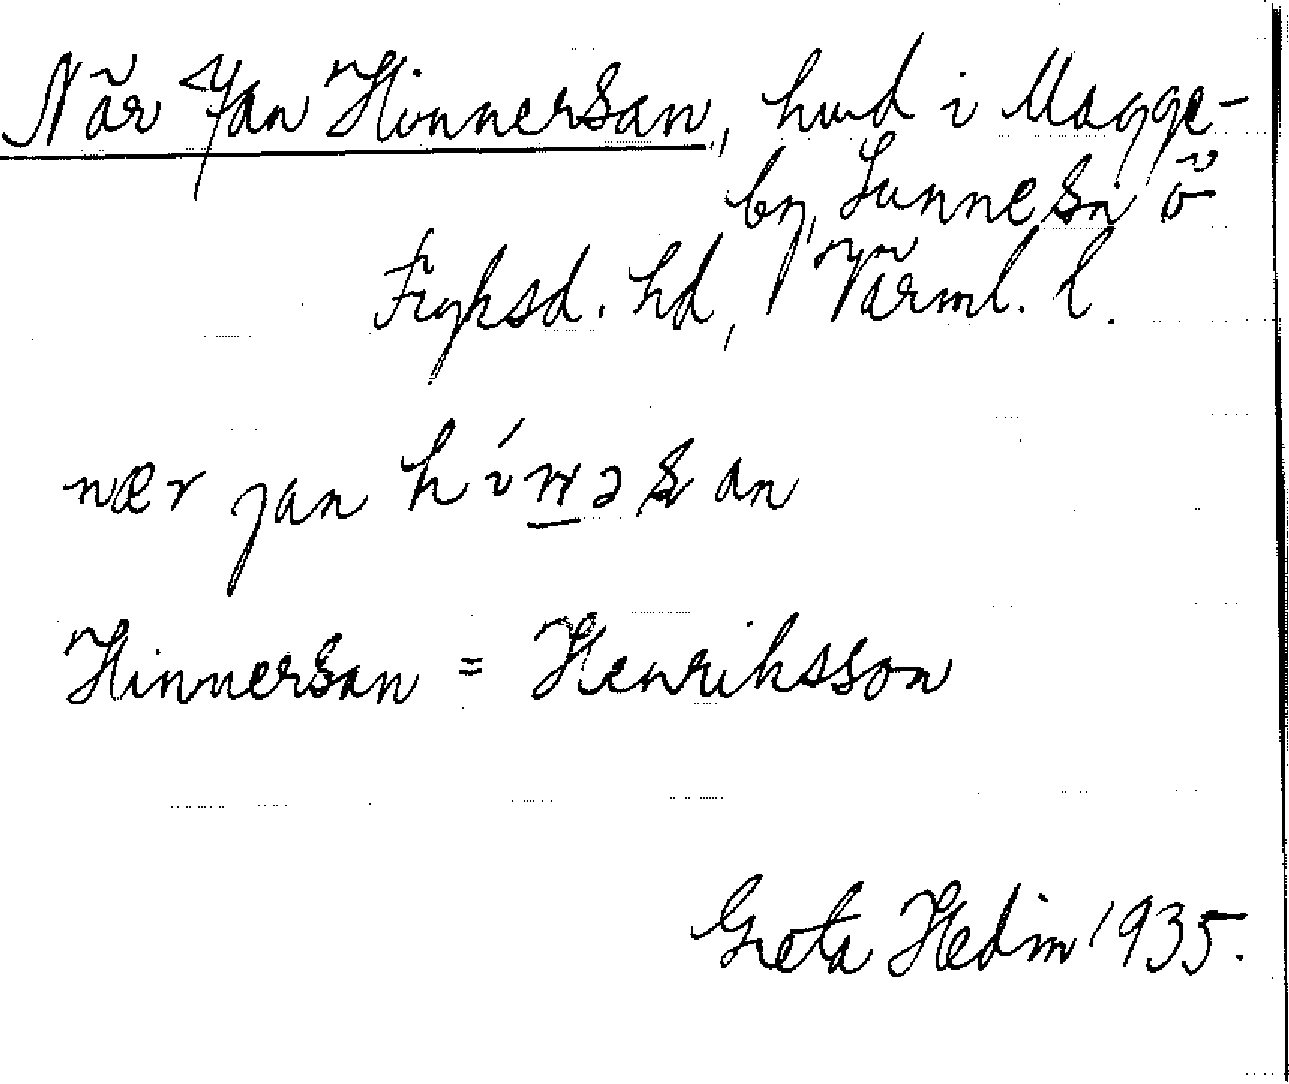 När Jan Hinnersan, hmd i Magge-
by, Sunne sn ö
Fryksd. hd, Värml. l.
nær jan
Hinnersan = Henriksson
Greta Hedin 1935.